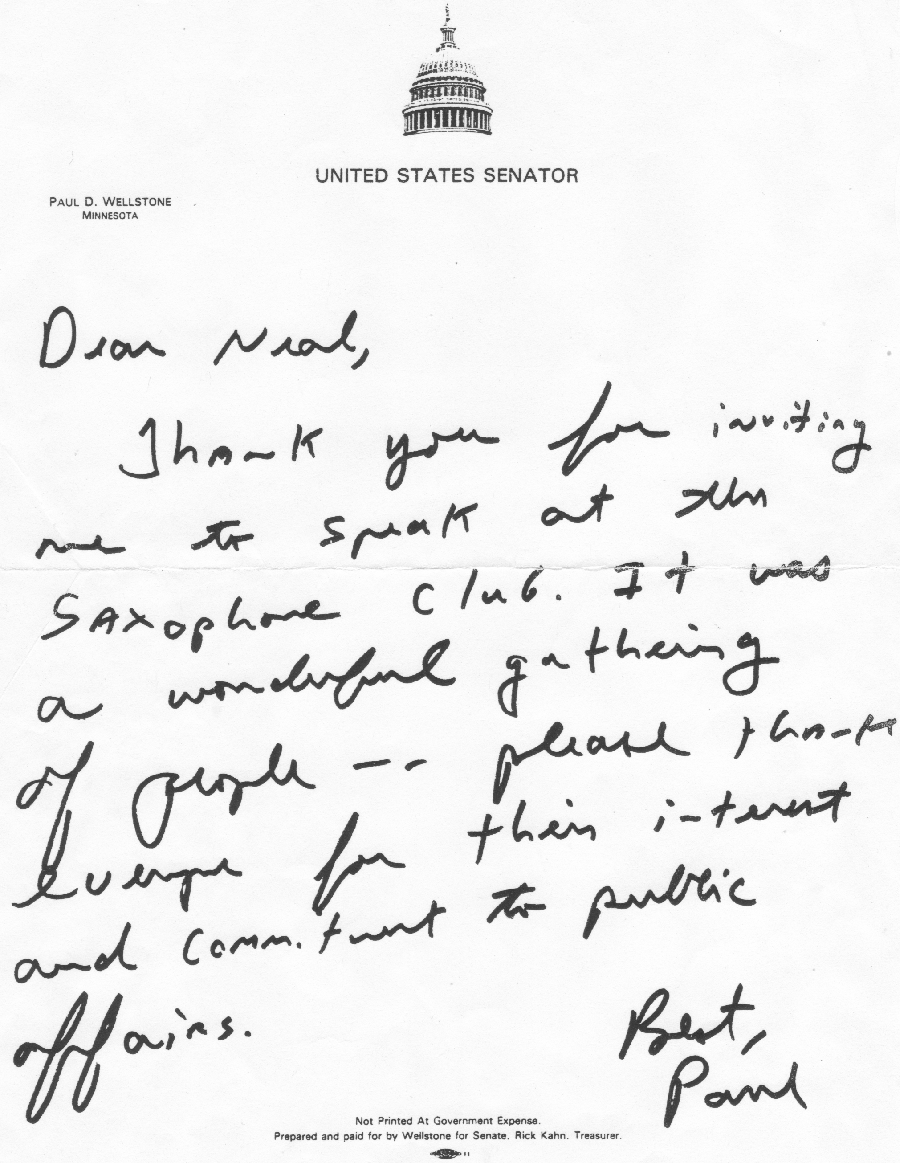 UNITED STATES SENATOR
PAUL D. WELLSTONE
MINNESOTA
Dear Neal,
Thank you for inviting
me to speak at the
Saxophone Club. It was
a wonderful gathering
of people -- please thank
everyone for their interest
and commitment to public
affairs.
Best,
Paul
Not Printed At Government Expense.
Prepared and paid for by Wellstone for Senate. Rick Kahn. Treasurer.